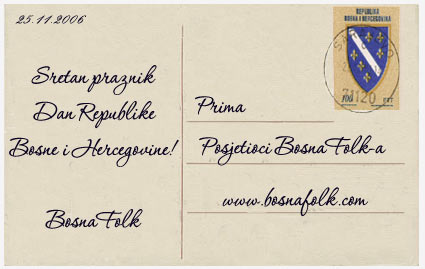 25.11.2006
Sretan praznik
Dan Republike
Bosne i Hercegovine!
Bosna Folk
REPUBLIKA
BOSNA I HERCEGOVINA
100
71120
Prima
Posjetioci Bosna Folk-a
www.bosnafolk.com